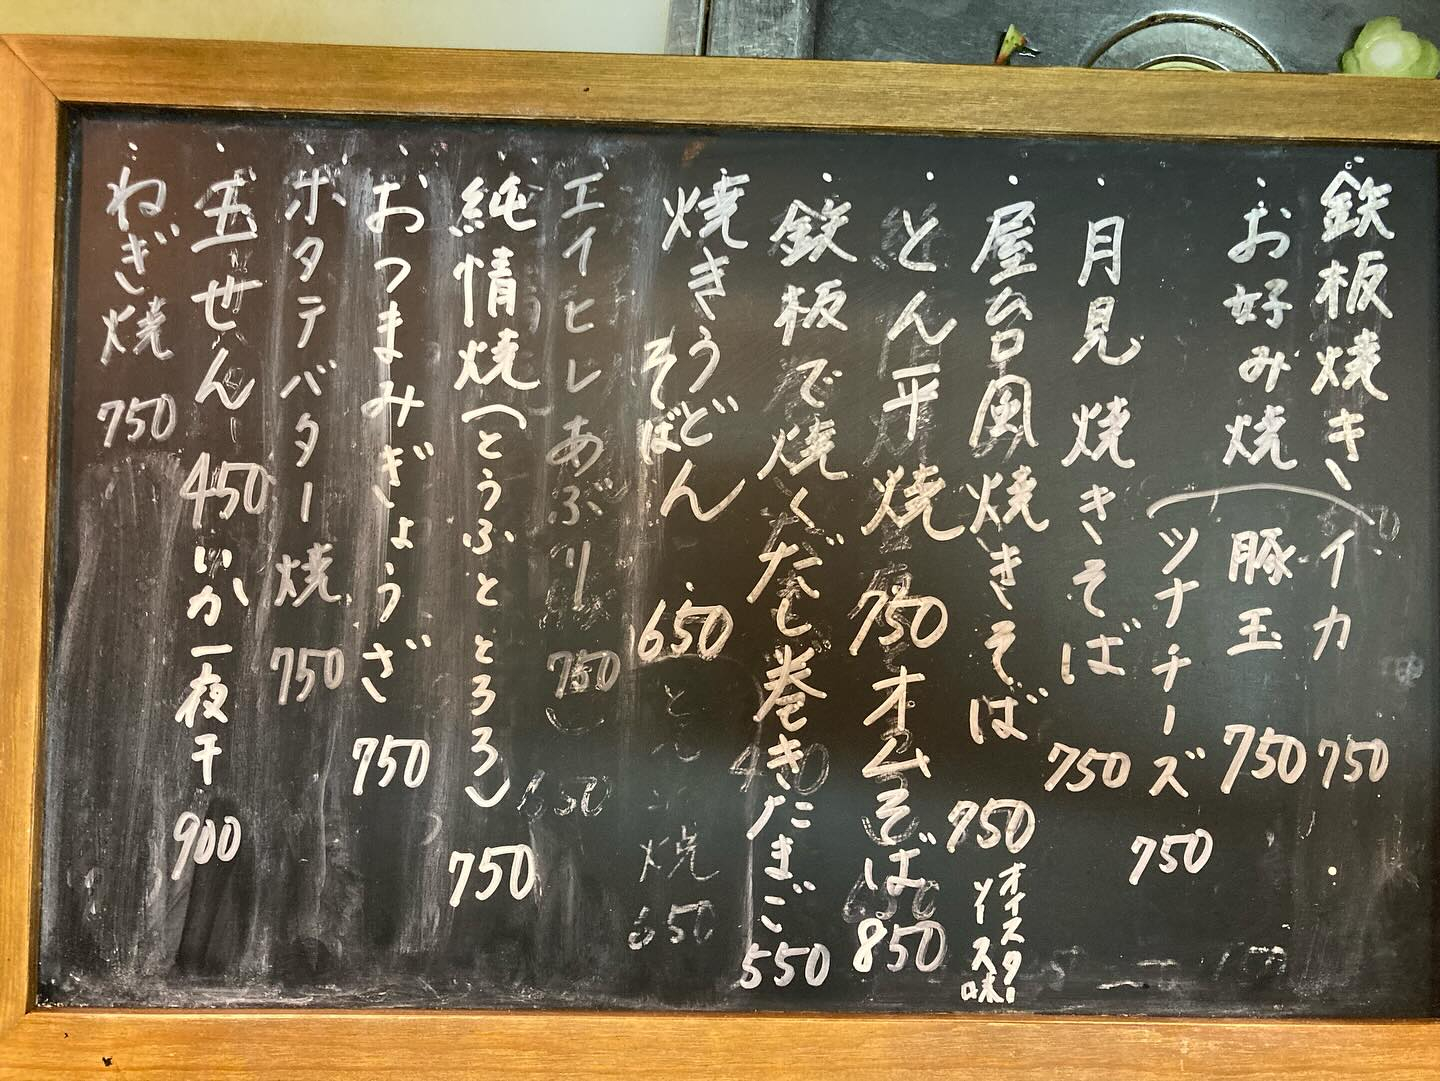 鉄板焼き、
イカ 750
・お好み焼
豚玉 750
ツナチーズ 750
・月見焼きそば 750
・屋台風焼きそば 750
オイスターソース味
・とん平焼 750
オムそば 850
・鉄板で焼くだし巻きたまご 550
・焼きうどん
そば
650
・エイヒレあぶり 750
・純情焼(とうふととろろ) 750
・おつまみぎょうざ 750
・ホタテバター焼 750
・玉せん 450
いか一夜干 900
・ねぎ焼 750